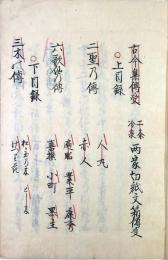 古今集傳受 二条 冷泉 両家切紙文箱傳受
〇上目録
二聖乃傳
人丸
赤人
六歌仙の傳
遍昭 業平 康秀
喜撰 小町 黒主
〇下目録
三木の傳